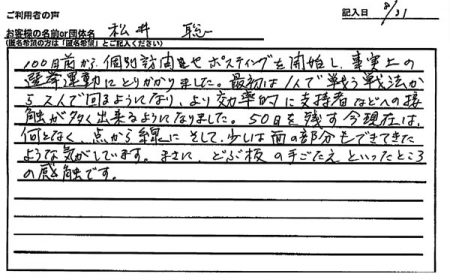 ご利用者の声
記入日 8/31
お客様の名前or団体名 松井 聡一
(匿名希望の方は「匿名希望」とご記入ください)
100日前から個別訪問やポスティングを開始し、事実上の
選挙運動にとりかかりました。最初は1人で戦う戦法か
ら2人で回るようになり、より効率的に支持者などへの接
触が多く出来るようになりました。50日を残す今現在は、
何となく、点から線に そして、少しは面の部分もできてきた
ような気がしています。まさに、どぶ板の手ごたえといったところ
の感触です。